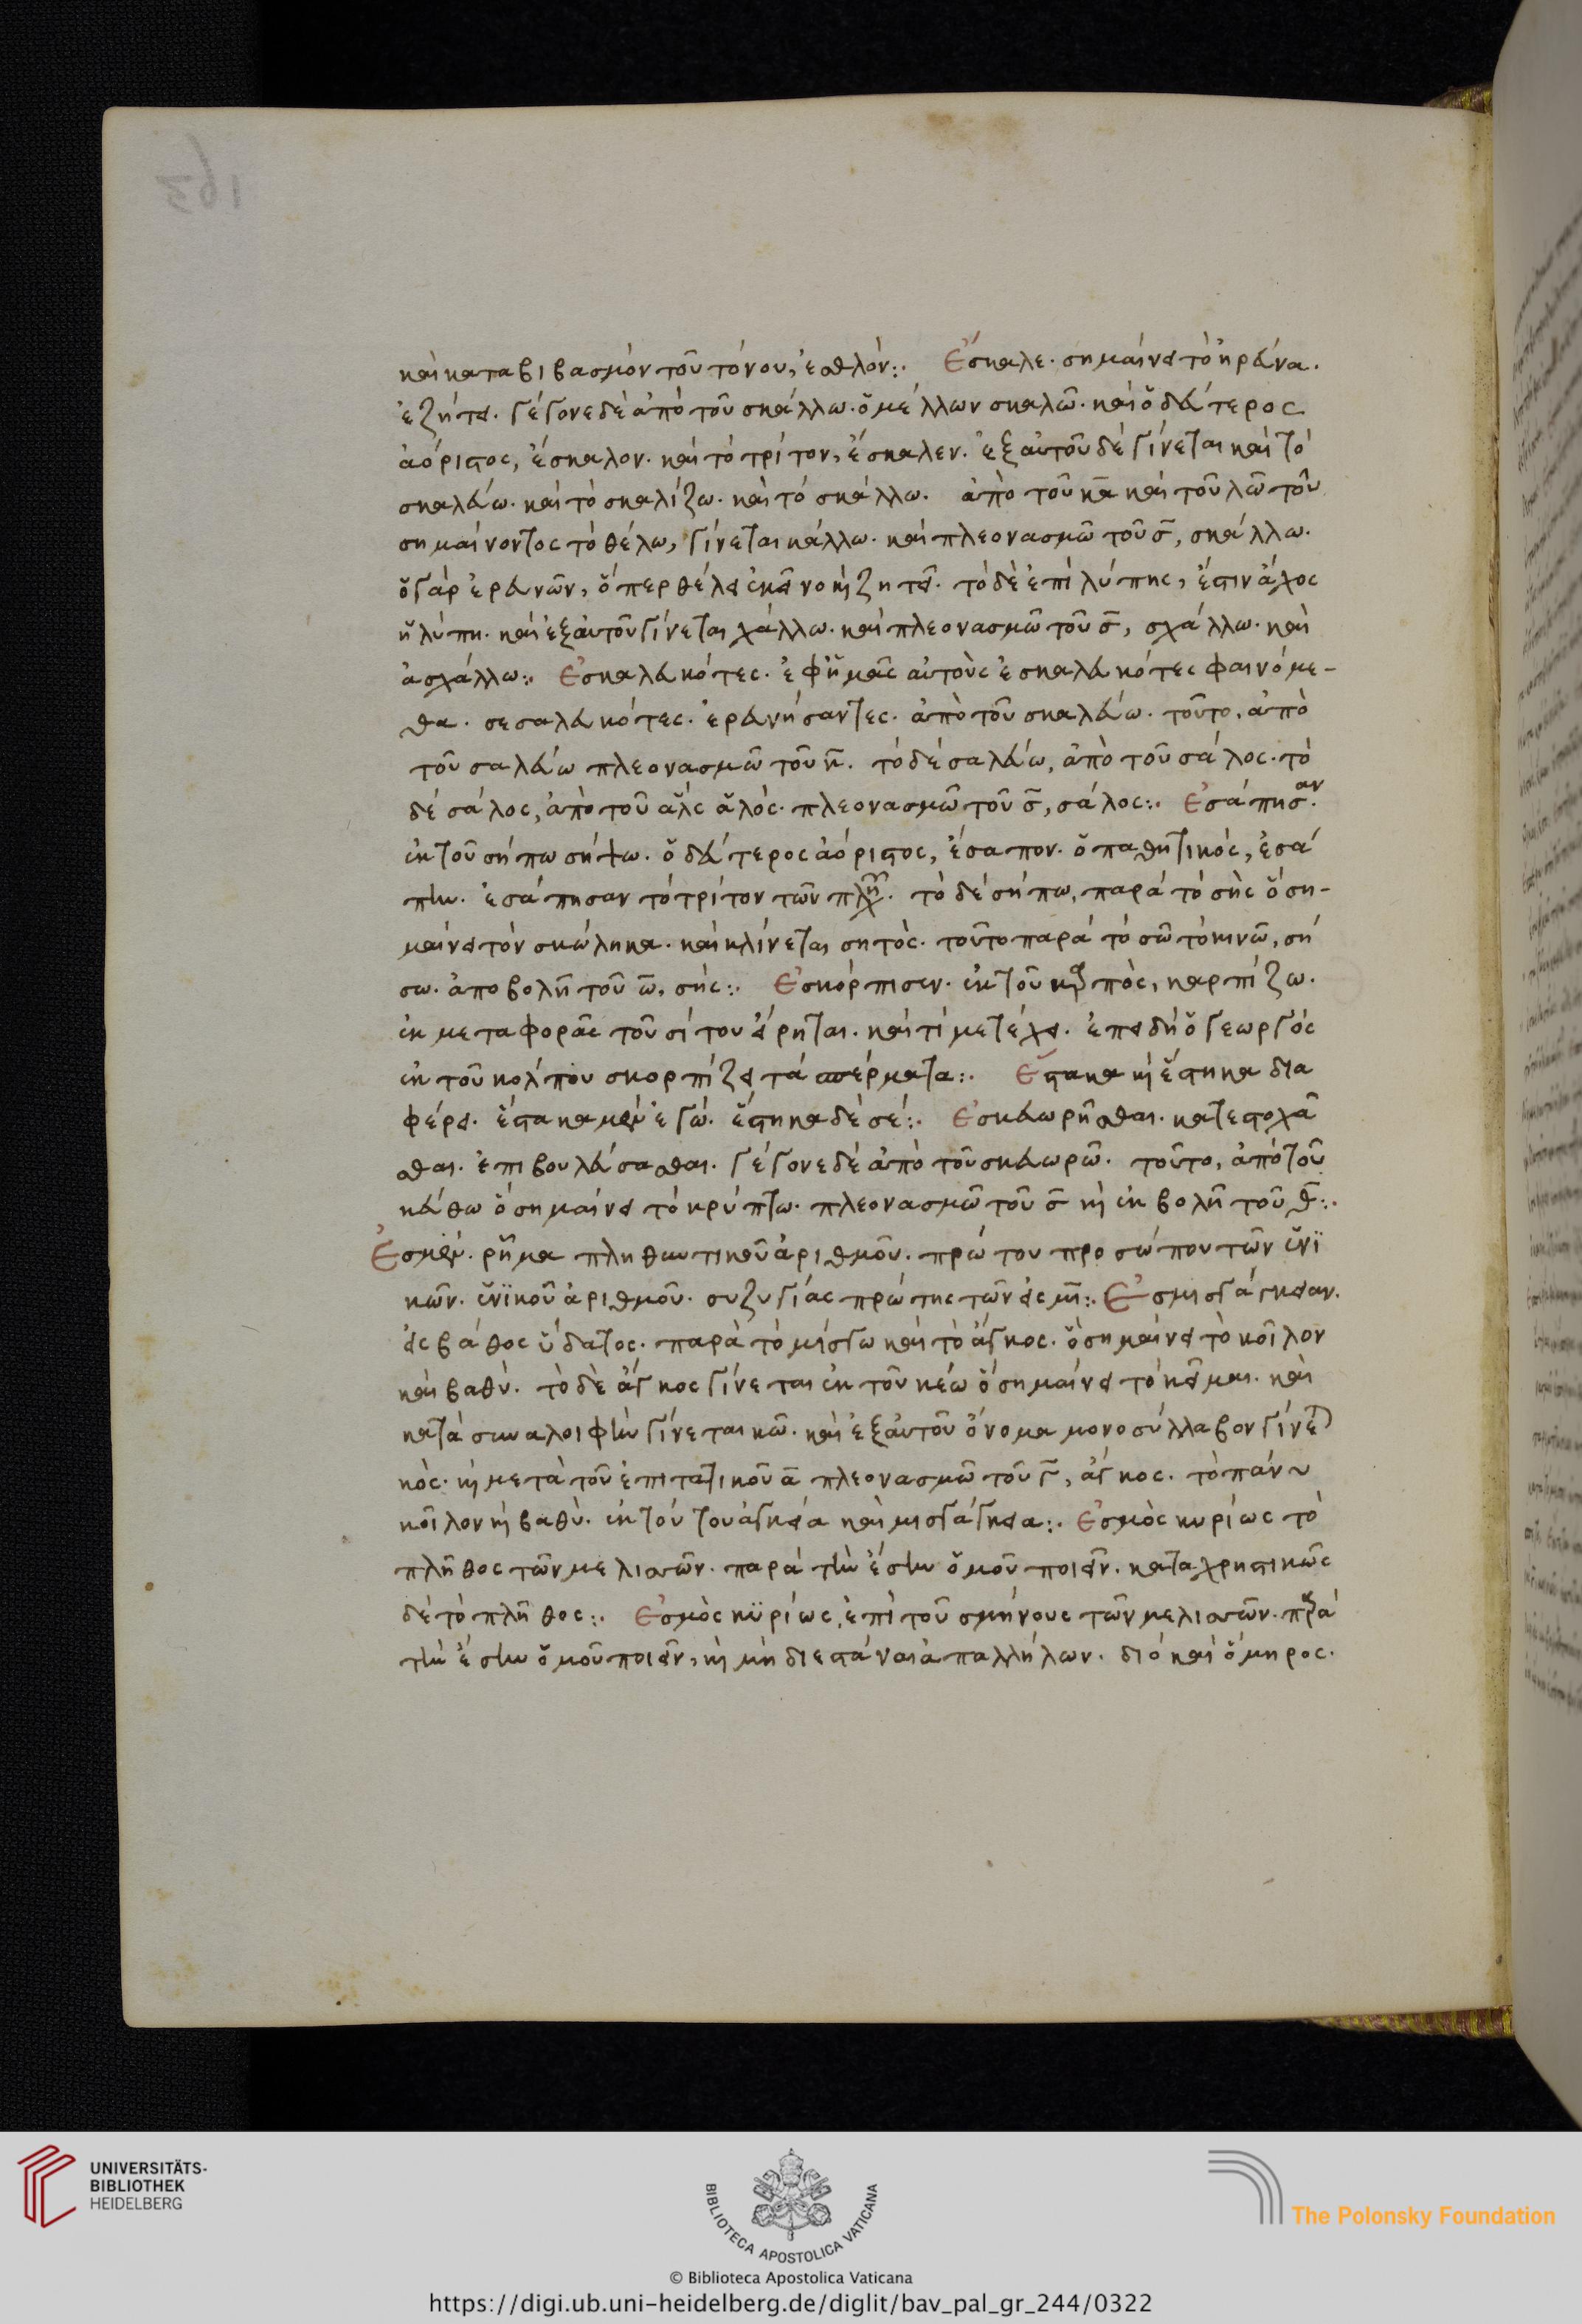 καὶ καταβιβασμὸν τοῦ τόνου, ἐσθλόν:· Ἔσκαλε· σημαίνει τὸ ἠρεύνα.
ἐζήτει. γέγονε δὲ ἀπὸ τοῦ σκάλλω. ὁ μέλλων σκαλῶ. καὶ ὁ δεύτερος
ἀόριστος, ἔσκαλον. καὶ τὸ τρίτον, ἔσκαλεν. ἐξ αὐτοῦ δὲ γίνεται καὶ τὸ
σκαλεύω. καὶ τὸ σκαλίζω. καὶ τὸ σκάλλω. ἀπὸ τοῦ κα καὶ τοῦ λῶ τοῦ
σημαίνοντος τὸ θέλω, γίνεται κάλλω. καὶ πλεονασμῶ τοῦ σ, σκάλλω.
ὁ γὰρ ἐρευνῶν, ὅπερ θέλει ἐκεῖνο καὶ ζητεῖ. τὸ δὲ ἐπὶ λύπης, ἔστιν ἄχος
ἡ λύπη. καὶ ἐξ αὐτοῦ γίνεται χάλλω. καὶ πλεονασμῶ τοῦ σ, σχάλλω. καὶ
ἀσχάλλω:· Ἐσκαλευκότες. ἐφ' ἡμᾶς αὐτοὺς ἐσκαλευκότες φαινόμε-
θα. σεσαλευκότες. ἐρευνήσαντες. ἀπὸ τοῦ σκαλεύω. τοῦτο, ἀπὸ
τοῦ σαλεύω πλεονασμῶ τοῦ κ. τὸ δὲ σαλεύω, ἀπὸ τοῦ σάλος. τὸ
δὲ σάλος, ἀπὸ τοῦ ἅλς ἁλός. πλεονασμῶ τοῦ σ, σάλος:· Ἐσάπησαν.
ἐκ τοῦ σήπω σήψω. ὁ δεύτερος ἀόριστος, ἔσαπον. ὁ παθητικός, ἐσά
πην. ἐσάπησαν τὸ τρίτον τῶν πλη. τὸ δὲ σήπω, παρὰ τὸ σὴς ὃ ση-
μαίνει τὸν σκώληκα. καὶ κλίνεται σητός. τοῦτο παρὰ τὸ σῶ τὸ κινῶ, σή
σω. ἀποβολῆ τοῦ ω, σής:· Ἐσκόρπισεν. ἐκ τοῦ καρπὸς, καρπίζω.
ἐκ μεταφορᾶς τοῦ σίτου εἴρηται. καὶ τί μετέχει. ἐπειδὴ ὁ γεωργὸς
ἐκ τοῦ κόλπου σκορπίζει τὰ σπέρματα:· Ἔστακα καὶ ἕστηκα δια
φέρει. ἔστακα μὲν ἐγώ. ἕστηκα δὲ σέ:· Ἐσκευωρῆσθαι. κατεστοχᾶ
σθαι. ἐπιβουλεύσασθαι. γέγονε δὲ ἀπὸ τοῦ σκευωρῶ. τοῦτο, ἀπὸ τοῦ
κεύθω ὃ σημαίνει τὸ κρύπτω. πλεονασμῶ τοῦ σ καὶ ἐκβολῆ τοῦ θ:·
Ἐσμέν. ῥῆμα πληθυντικοῦ ἀριθμοῦ. πρώτου προσώπου τῶν ἑνϊ
κῶν. ἑνϊκοῦ ἀριθμοῦ. συζυγίας πρώτης τῶν εἰς μι:· Ἐσμισγάγκειαν.
εἰς βάθος ὕδατος. παρὰ τὸ μίσγω καὶ τὸ ἄγκος. ὃ σημαίνει τὸ κοῖλον
καὶ βαθύ. τὸ δὲ ἄγκος γίνεται ἐκ τοῦ κέω ὃ σημαίνει τὸ κεῖμαι. καὶ
κατὰ συναλοιφὴν γίνεται κῶ. καὶ ἐξ αὐτοῦ ὄνομα μονοσύλλαβον γίνεται
κός. καὶ μετὰ τοῦ ἐπιτατικοῦ α πλεονασμῶ τοῦ γ, ἄγκος. τὸ πάνυ
κοῖλον καὶ βαθύ. ἐκ τούτου ἄγκεια καὶ μισγάγκεια:· Ἑσμὸς κυρίως τὸ
πλῆθος τῶν μελισσῶν. παρὰ τὴν ἕσιν ὁμοῦ ποιεῖν. καταχρηστικῶς
δὲ τὸ πλῆθος:· Ἑσμὸς κϋρίως, ἐπὶ τοῦ σμήνους τῶν μελισσῶν. παρὰ
τὴν ἕσιν ὁμοῦ ποιεῖν, καὶ μὴ διεστάναι ἀπαλλήλων. διὸ καὶ ὅμηρος.
163
UNIVERSITÄTS-
BIBLIOTHEK
HEIDELBERG
BIBLIOTECA APOSTOLICA VATICANA
The Polonsky Foundation
© Biblioteca Apostolica Vaticana
https://digi.ub.uni-heidelberg.de/diglit/bav_pal_gr_244/0322